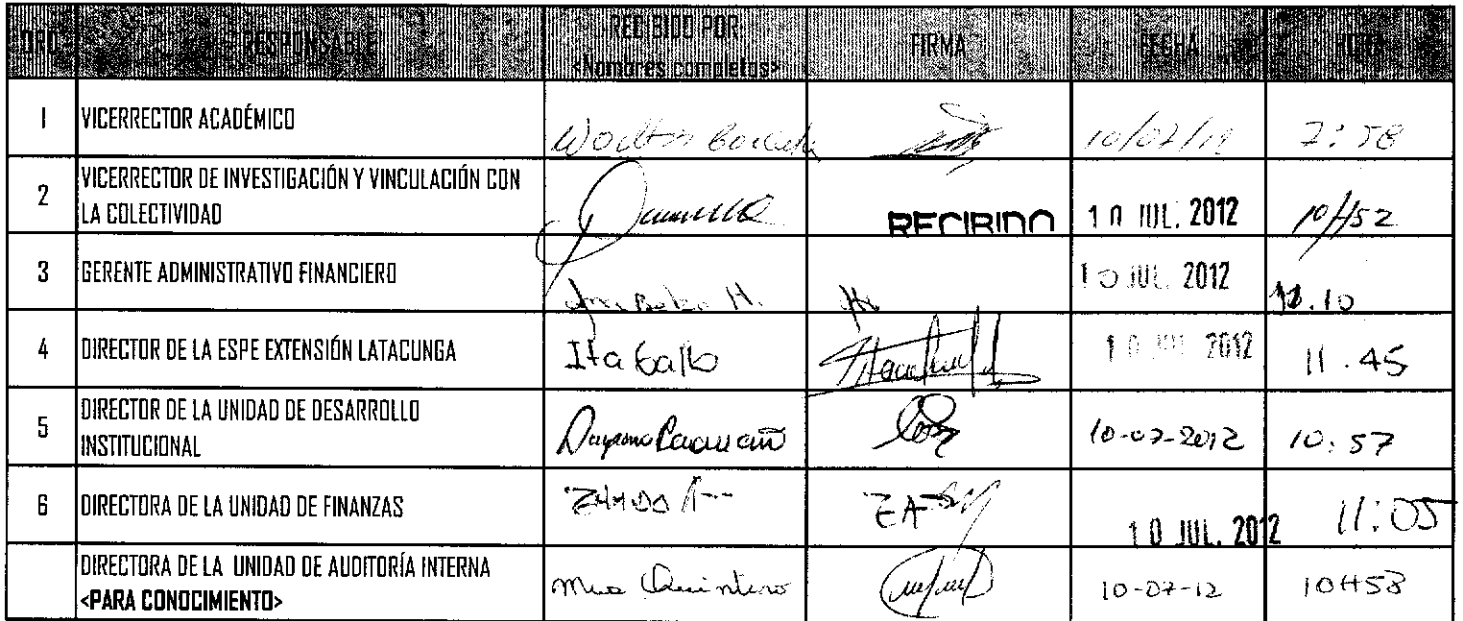 ORD RESPONSABLE RECIBIDO POR FIRMA FECHA HORA
<Nombres completos>
1 VICERRECTOR ACADÉMICO
2 VICERRECTOR DE INVESTIGACIÓN Y VINCULACIÓN CON
LA COLECTIVIDAD RECIBIDO 10 JUL. 2012 10H52
3 GERENTE ADMINISTRATIVO FINANCIERO 10 JUL. 2012
4 DIRECTOR DE LA ESPE EXTENSIÓN LATACUNGA Ita Gallo 10 JUL. 2012 11.45
5 DIRECTOR DE LA UNIDAD DE DESARROLLO
INSTITUCIONAL 10-07-2012 10:57
6 DIRECTORA DE LA UNIDAD DE FINANZAS 10 JUL. 2012 11:05
DIRECTORA DE LA UNIDAD DE AUDITORÍA INTERNA
<PARA CONOCIMIENTO> Quintero 10-07-12 10H58